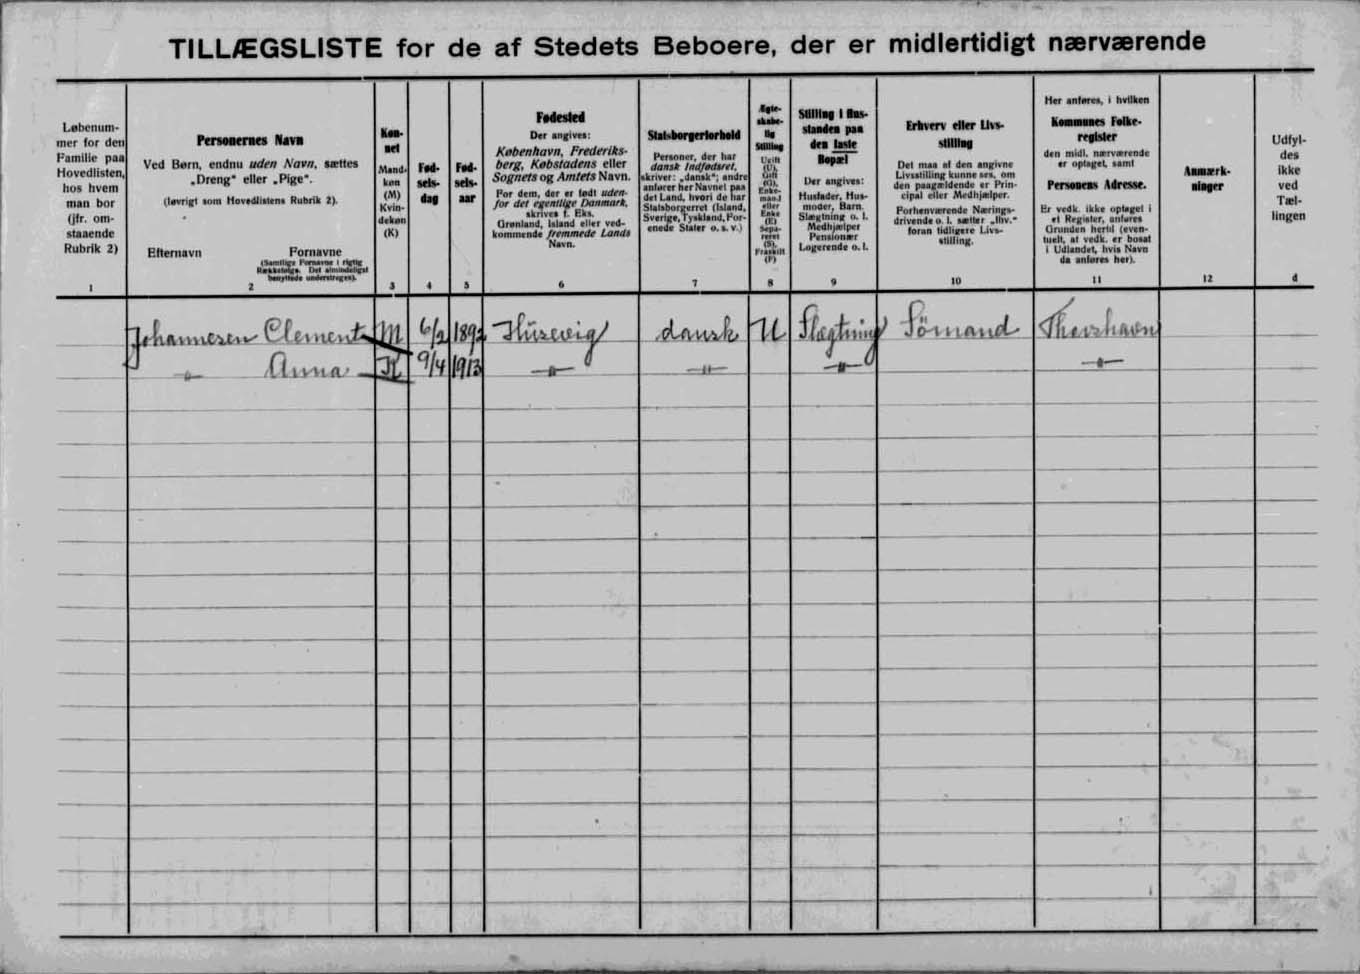 TILLÆGSLISTE for de af Stedets Beboere, der er midlertidigt nærværende
Løbenum-
mer for den
Familie paa
Hovedlisten,
hos hvem
man bor
(jfr. om-
staaende
Rubrik 2)
1
Personernes Navn
Ved Børn, endnu uden Navn, sættes
„Dreng“ eller „Pige“.
(Iøvrigt som Hovedlistens Rubrik 2).
Efternavn Fornavne
(Samtlige Fornavne i rigtig
Rækkefølge. Det almindeligst
benyttede understreges).
2
Køn-
net
Mand-
køn
(M)
Kvin-
dekøn
(K)
3
Fød-
sels-
dag
4
Fød-
sels-
aar
5
Fødested
Der angives:
København, Frederiks-
berg, Købstadens eller
Sognets og Amtets Navn.
For dem, der er født uden-
for det egentlige Danmark,
skrives f. Eks.
Grønland, Island eller ved-
kommende fremmede Lands
Navn.
6
Statsborgerforhold
Personer, der har
dansk Indfødsret,
skriver: „dansk“; andre
anfører her Navnet paa
det Land, hvori de har
Statsborgerret (Island,
Sverige, Tyskland, For-
enede Stater o. s. v.)
7
Ægte-
skabe-
lig
Stilling
Ugift
(U),
Gift
(G),
Enke-
mand
eller
Enke
(E)
Sepa-
reret
(S),
Fraskilt
(F)
8
Stilling i Hus-
standen paa
den faste
Bopæl
Der angives:
Husfader, Hus-
moder, Barn.
Slægtning o. l.
Medhjælper
Pensionær
Logerende o. l.
9
Erhverv eller Livs-
stilling
Det maa af den angivne
Livsstilling kunne ses, om
den paagældende er Prin-
cipal eller Medhjælper.
Forhenværende Nærings-
drivende o. l. sætter „fhv.“
foran tidligere Livs-
stilling.
10
Her anføres, i hvilken
Kommunes Folke-
register
den midl. nærværende
er optaget, samt
Personens Adresse.
Er vedk. ikke optaget i
et Register, anføres
Grunden hertil (even-
tuelt, at vedk. er bosat
i Udlandet, hvis Navn
da anføres her).
11
Anmærk-
ninger
12
Udfyl-
des
ikke
ved
Tæl-
lingen
d
Johannesen Clement M 6/2 1892 Húsevig dansk U Slægtning Sömand Thorshavn
-〃- Anna K 9/4 1913 -〃- -〃- -〃- -〃-